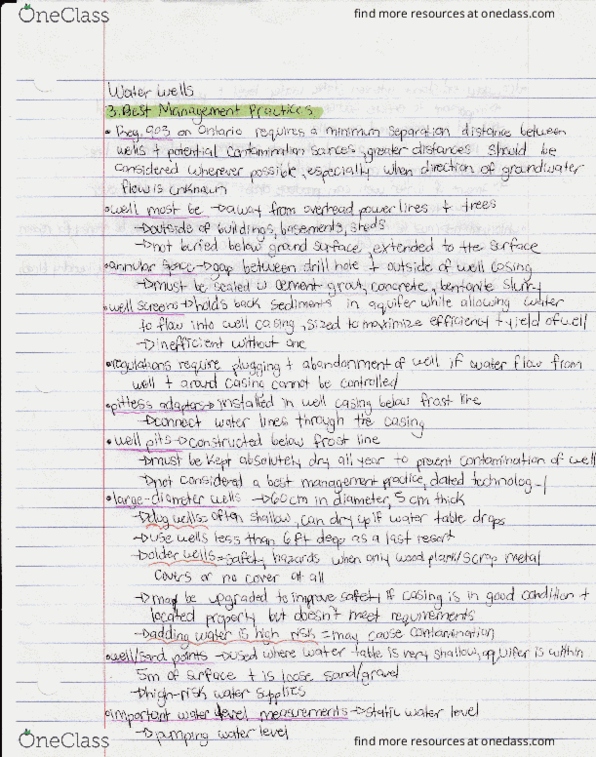 OneClass
find more resources at oneclass.com
Water Wells
3. Best Management Practices
• Reg. 903 on Ontario requires a minimum separation distance between
wells + potential contamination sources, greater distances should be
considered wherever possible, especially when direction of groundwater
flow is unknown
• well must be → away from overhead power lines + trees
→ outside of buildings, basements, sheds
→ not buried below ground surface, extended to the surface
• annular space → gap between drill hole + outside of well casing
→ must be sealed w cement grout, concrete, bentonite slurry
• well screens → holds back sediments in aquifer while allowing water
to flow into well casing, sized to maximize efficiency + yield of well
→ inefficient without one
• regulations require plugging + abandonment of well if water flow from
well + around casing cannot be controlled
• pitless adaptors → installed in well casing below frost line
→ connect water lines through the casing
• well pits → constructed below frost line
→ must be kept absolutely dry all year to prevent contamination of well
→ not considered a best management practice, dated technology
• large-diameter wells → 60cm in diameter, 5 cm thick
→ dug wells = often shallow, can dry up if water table drops
→ use wells less than 6ft deep as a last resort
→ older wells = safety hazards when only wood plank/scrap metal
covers or no cover at all
→ may be upgraded to improve safety if casing is in good condition +
located properly but doesn't meet requirements
→ adding water is high risk = may cause contamination
• well/sand points → used where water table is very shallow, aquifer is within
5m of surface + is loose sand/gravel
→ high-risk water supplies
• important water level measurements → static water level
→ pumping water level
OneClass
find more resources at oneclass.com